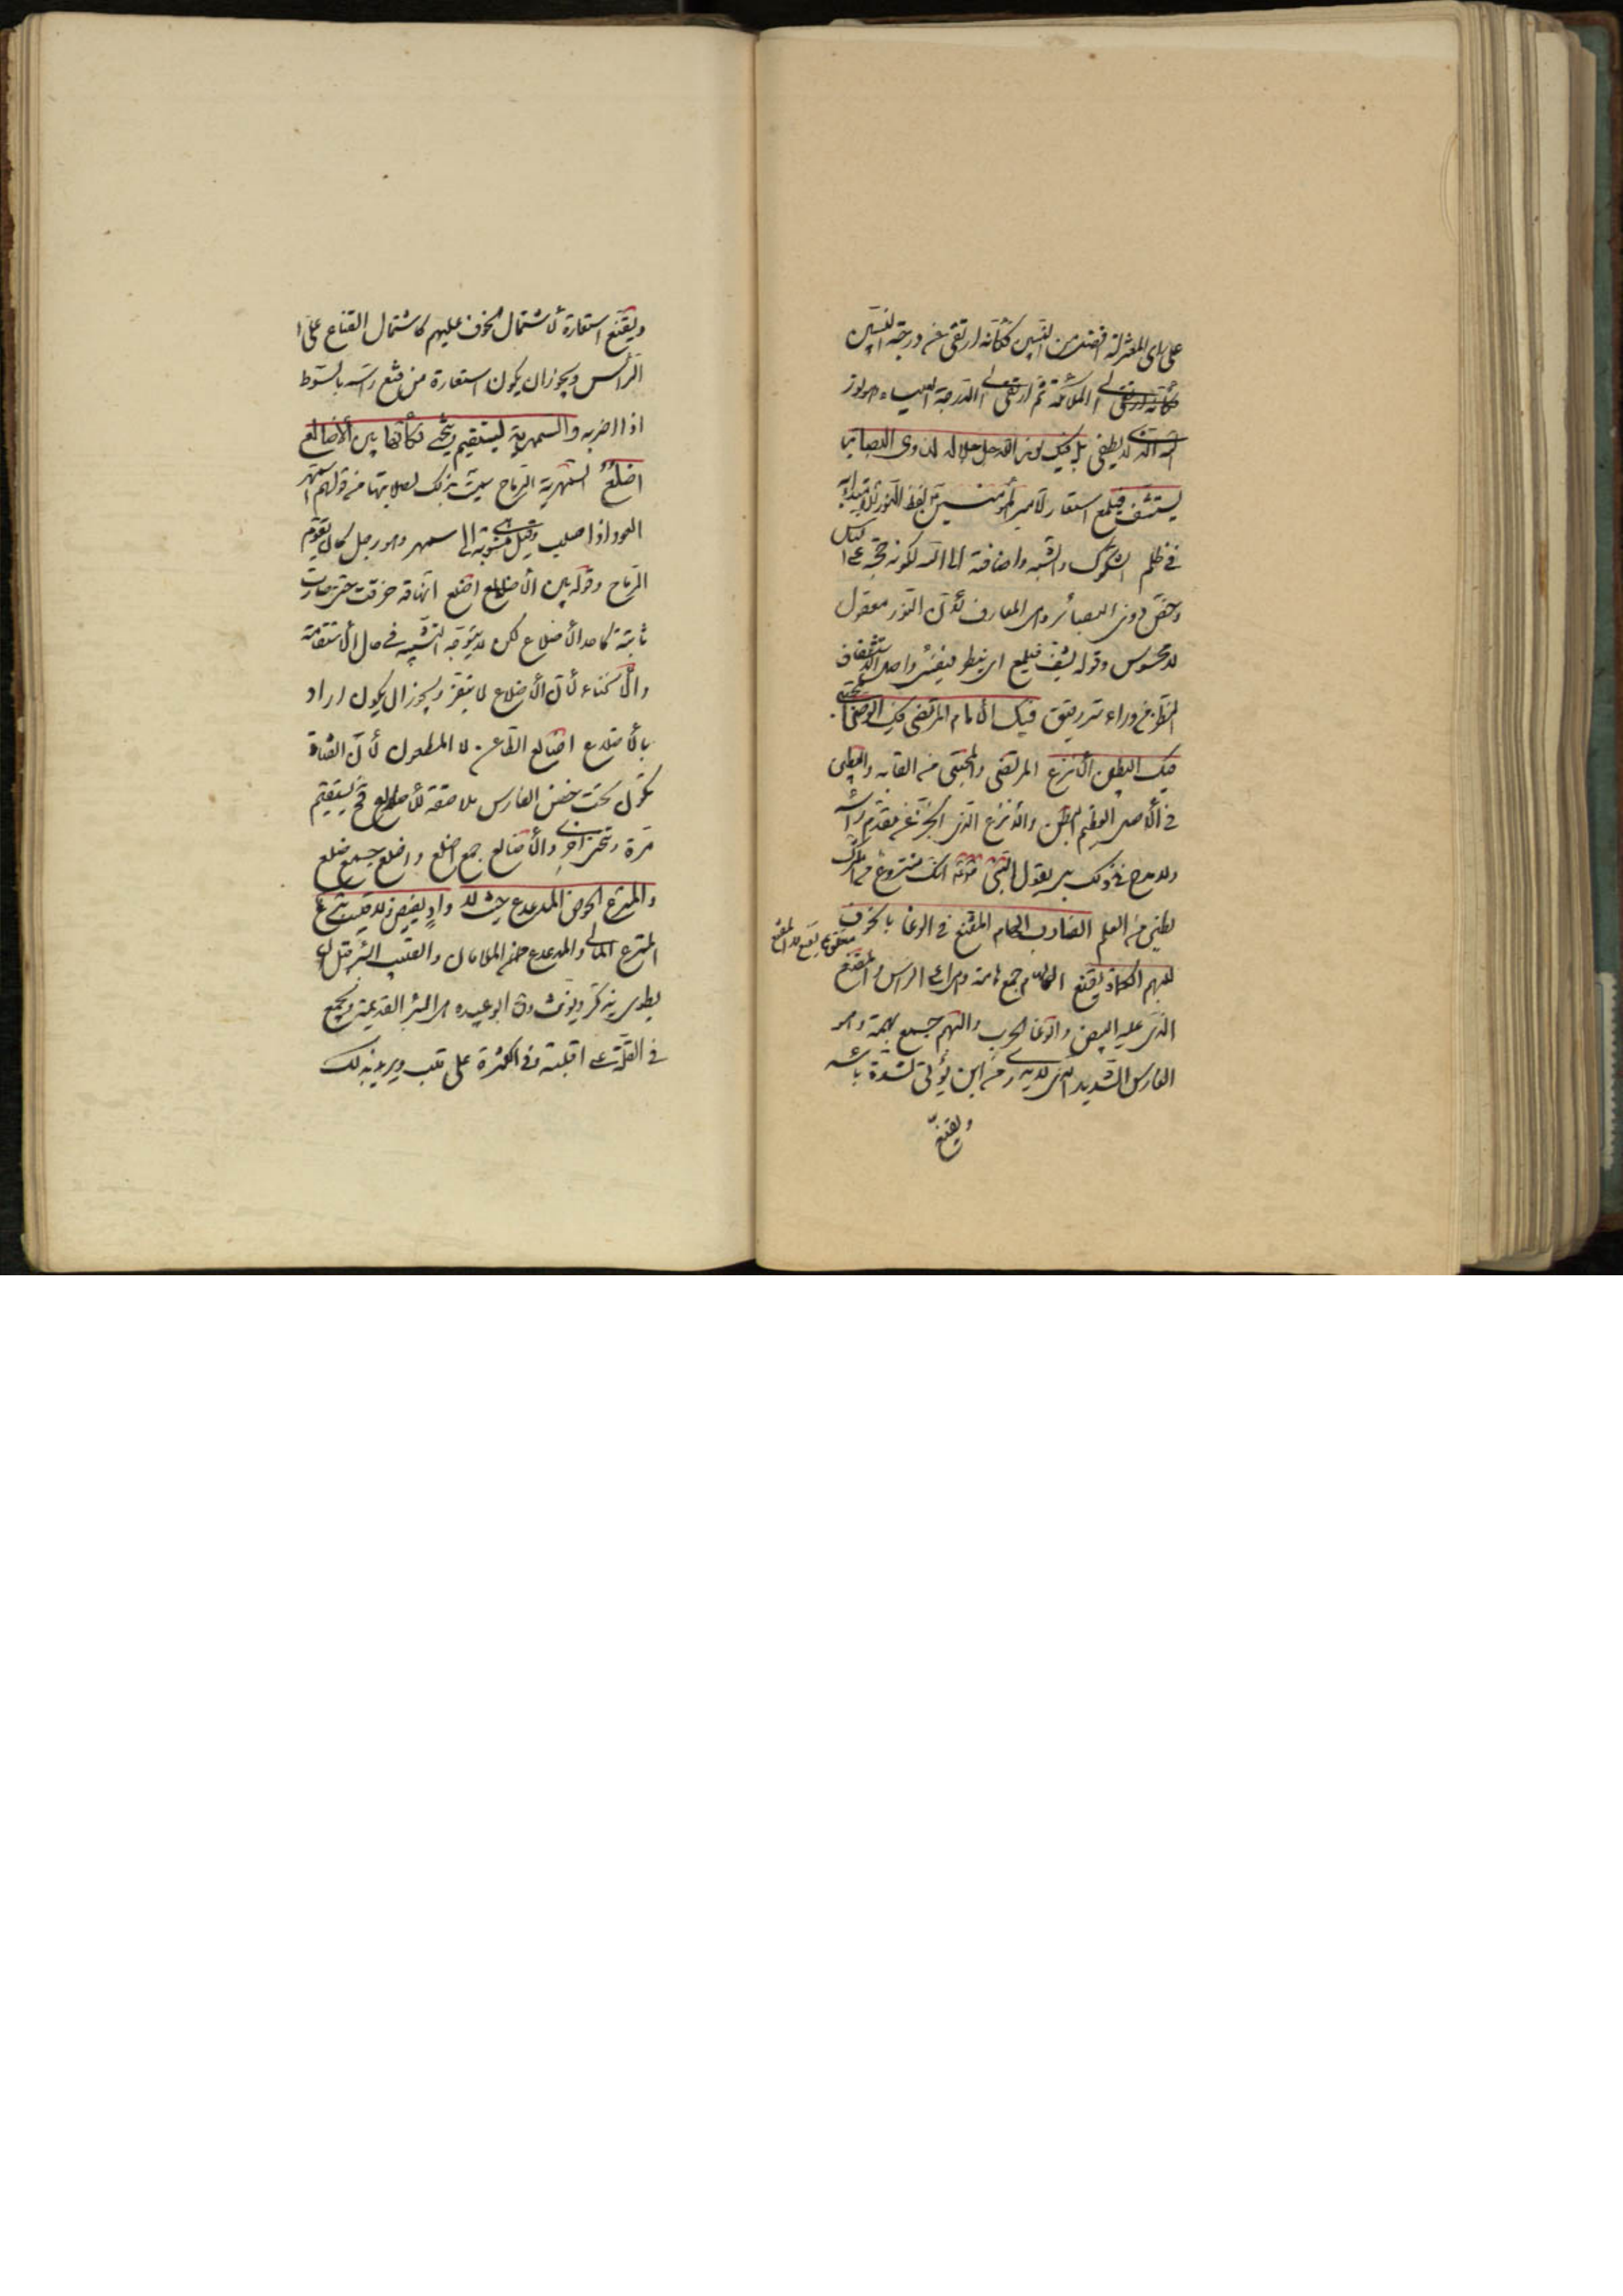 على راى المعتزلة افضل من النبيين فكأنه ارتقى عن درجة النبيين
كأنه ارتقى الى الملائكة ثم ارتقى الى الدرجة العلياء وهو نور
الله الذى لا يطفى بل فيك نور الله جل جلاله لذوى البصائر
يستشف فيلمع استعار لأمير المؤمنين لفظ النور للاهتداء به
فى ظلم الشكوك والشبه واضافته الى الله لكونه حجة على
وخص ذوى البصائر وهى المعارف لأن النور معقول
لا محسوس وقوله يشف فيلمع اى ينظر واصل الاستشفاف
النظر من وراء ستر رقيق فيك الامام المرتضى فيك الوصى المجتبى
فيك البطين الأنزع المرتضى والمجتبى من القابه والبطين
فى الأصل العظيم البطن والانزع الذى انحسر عن مقدم رأسه
ولا مدح فى ذلك بل يقول النبى انك منزوع من الشرك
بطين من العلم الضارب الهام المقنع فى الوغا بالخوف
للبهم الكماة يقنع الهام جمع هامة وهى الرأس والمقنع
الذى عليه البيض والوغا الحرب والبهم جمع بهمة وهو
الفارس الشديد الذى لا يدرى من اين يؤتى لشدة باسه
ويقنع
ويقنع استعارة لاشتمال الخوف عليهم كاشتمال القناع على
الرأس ويجوز ان يكون استعارة من قنع رأسه بالسوط
اذا ضربه والسمهرية يستقيم وينحنى فكأنها بين الأضالع
اضلع السمهرية الرماح سميت بذلك لصلابتها من قولهم اسمهر
العود اذا صلب وقيل منسوبة الى سمهر وهو رجل كان يقوم
الرماح وقوله بين الأضالع اضلع انها قد خرقت حتى صارت
ثابتة كاحد الأضلاع لكن لا يتوجه التشبيه فى حال الاستقامة
والانحناء لأن الأضلاع لا يتغير ويجوز ان يكون اراد
بالأضلاع اضالع الطاعن لا المطعون لأن القناة
تكون تحت حضن الفارس ملاصقة لأضلاعه فيستقيم
مرة وتنحنى اخرى والأضالع جمع اضلع واضلع جمع ضلع
والمترع الحوض المدعدع حيث لا واد يفيض ولا قليب يترع
المترع المالى والمدعدع الملآن والقليب البئر قبل ان
يطوى يذكر ويونث وقال ابو عبيده هى البئر القديمة ويجمع
فى القلة على اقلبة وفى الكثرة على قلب ويريد بذلك